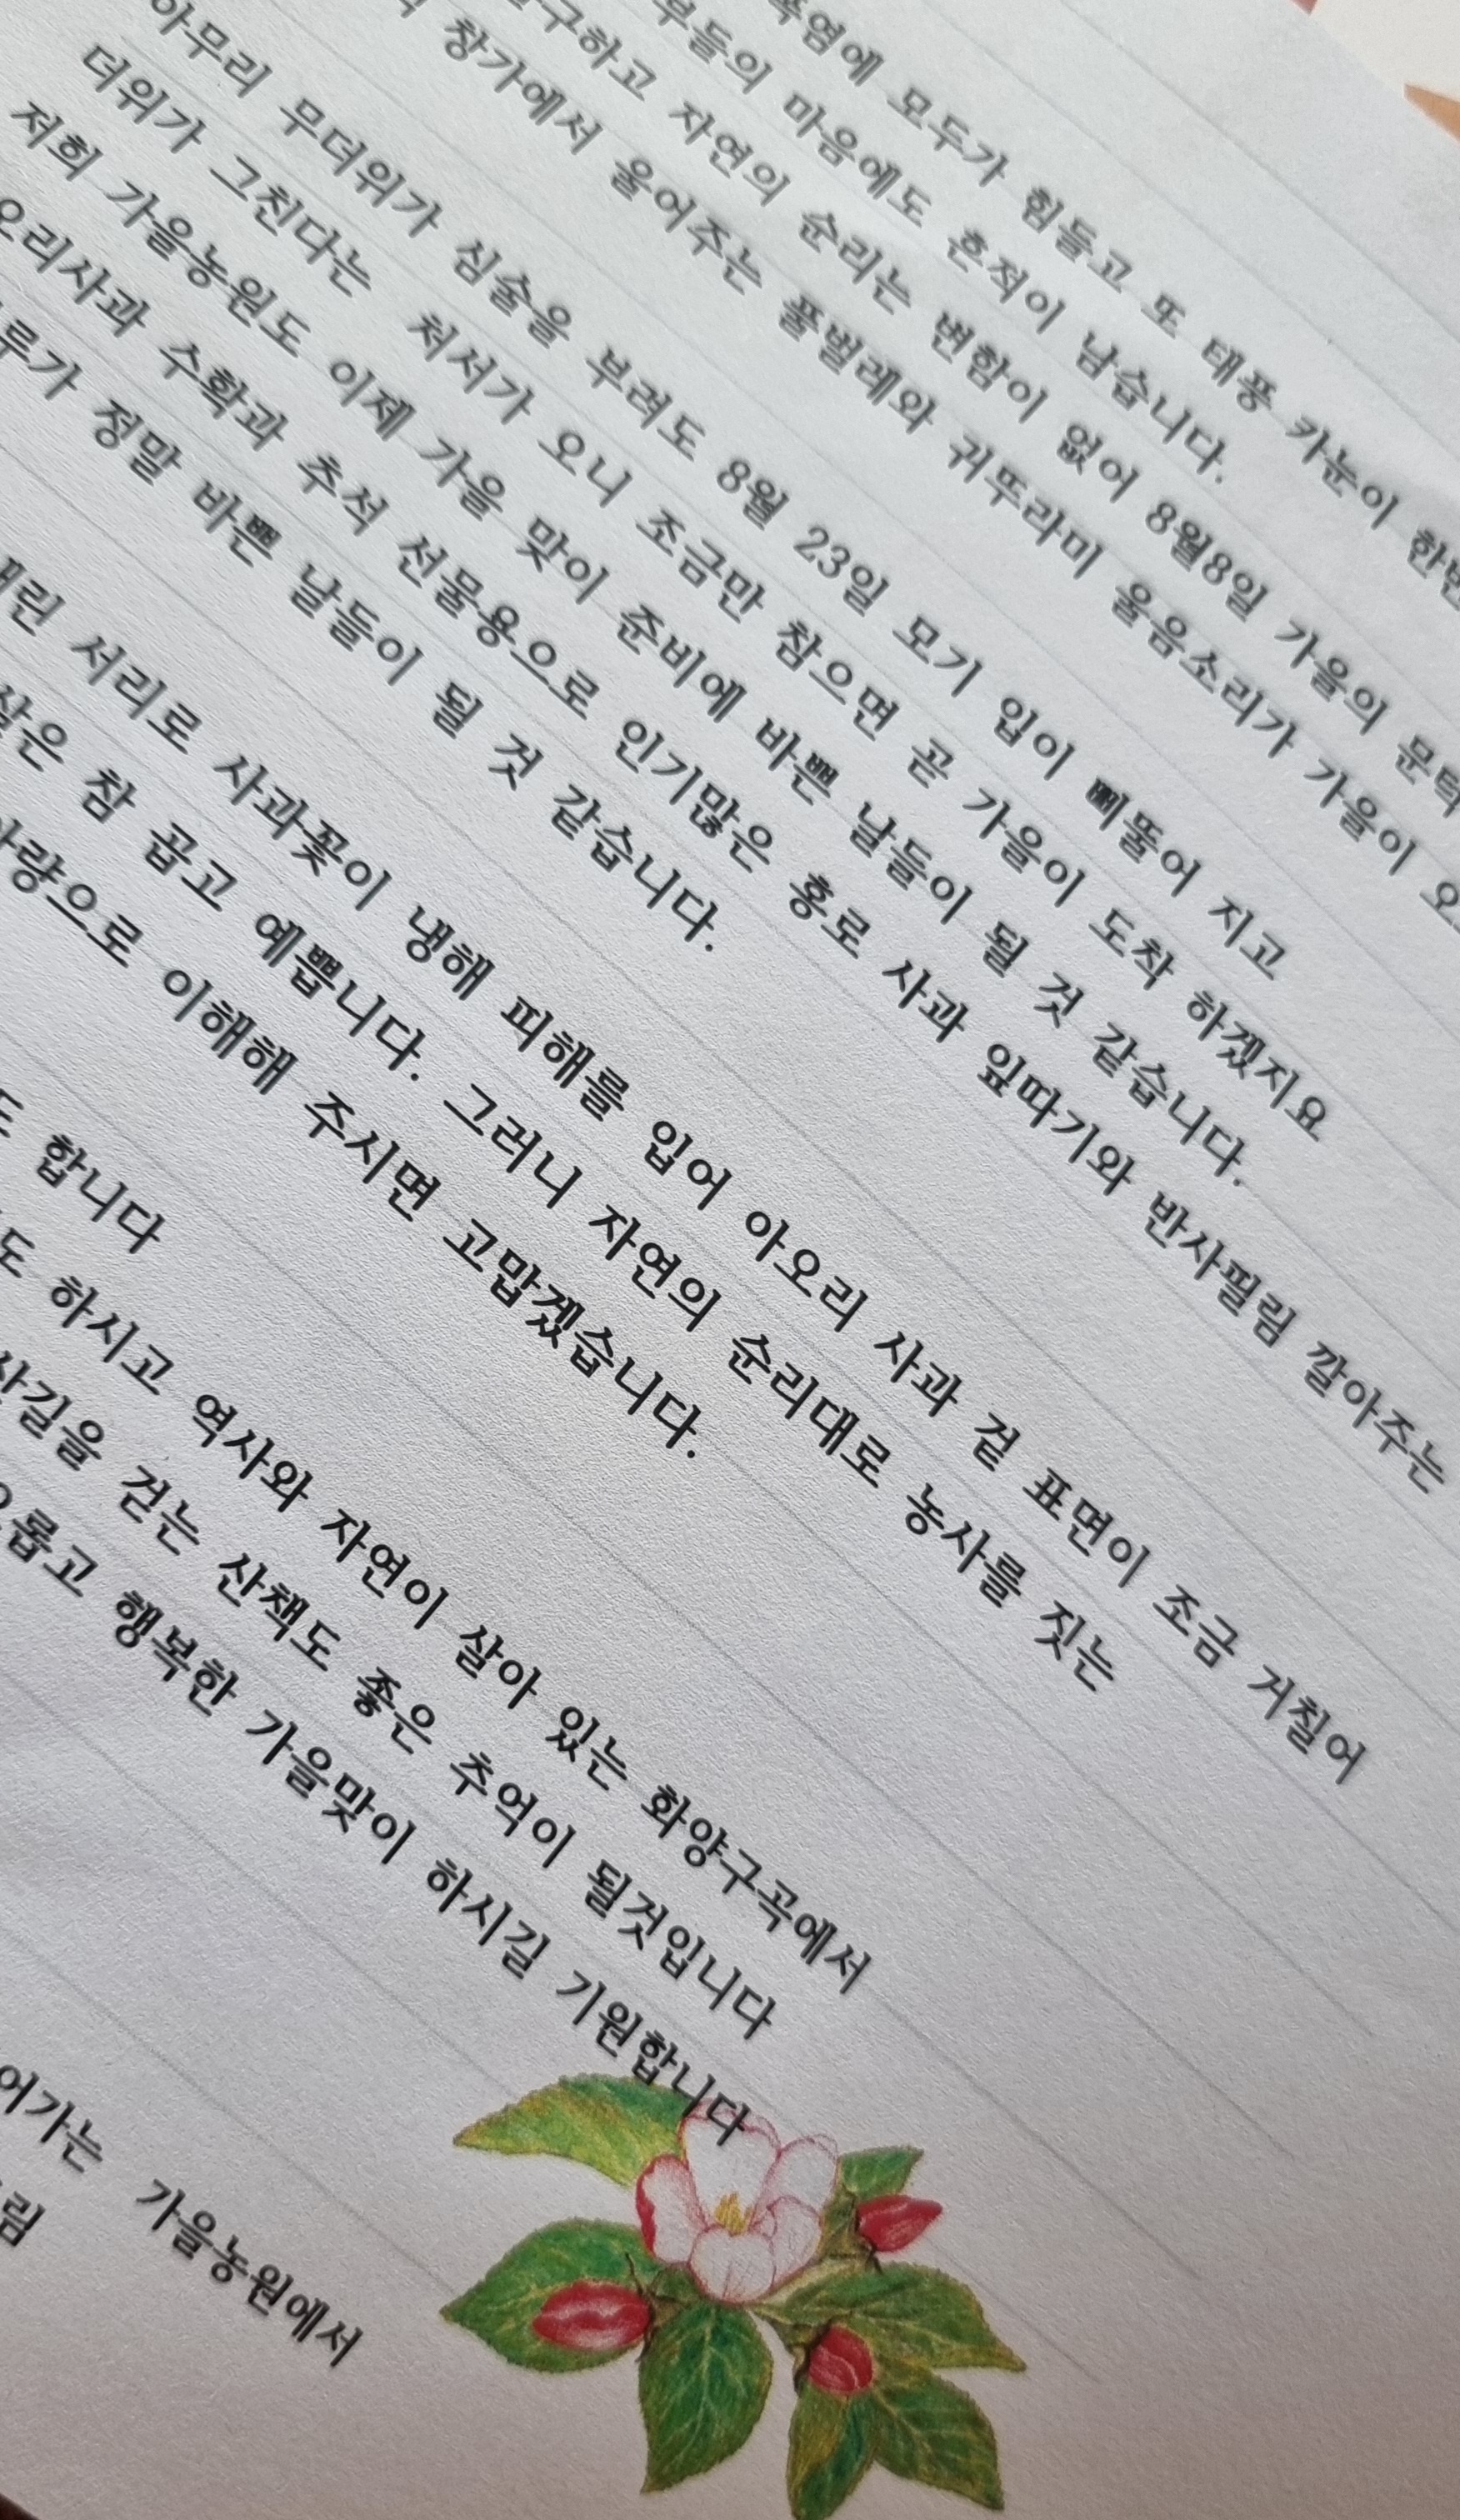 폭염에 모두가 힘들고 또 태풍 카눈이 한번
마음에도 흔적이 남습니다.
자연의 순리는 변함이 없어 8월8일 가을의 문턱
창가에서 울어주는 풀벌레와 귀뚜라미 울음소리가 가을이
아무리 무더위가 심술을 부려도 8월 23일 모기 입이 삐뚤어 지고
더위가 그친다는 처서가 오니 조금만 참으면 곧 가을이 도착 하겠지요
저희 가을농원도 이제 가을 맞이 준비에 바쁜 날들이 될 것 같습니다.
오리사과 수확과 추석 선물용으로 인기많은 홍로 사과 잎따기와 반사필림 깔아주는
정말 바쁜 날들이 될 것 같습니다.
서리로 사과꽃이 냉해 피해를 입어 아오리 사과 겉 표면이 조금 거칠어
참 곱고 예쁩니다. 그러니 자연의 순리대로 농사를 짓는
이해해 주시면 고맙겠습니다.
합니다
하시고 역사와 자연이 살아 있는 화양구곡에서
걷는 산책도 좋은 추억이 될것입니다
행복한 가을맞이 하시길 기원합니다
가을농원에서